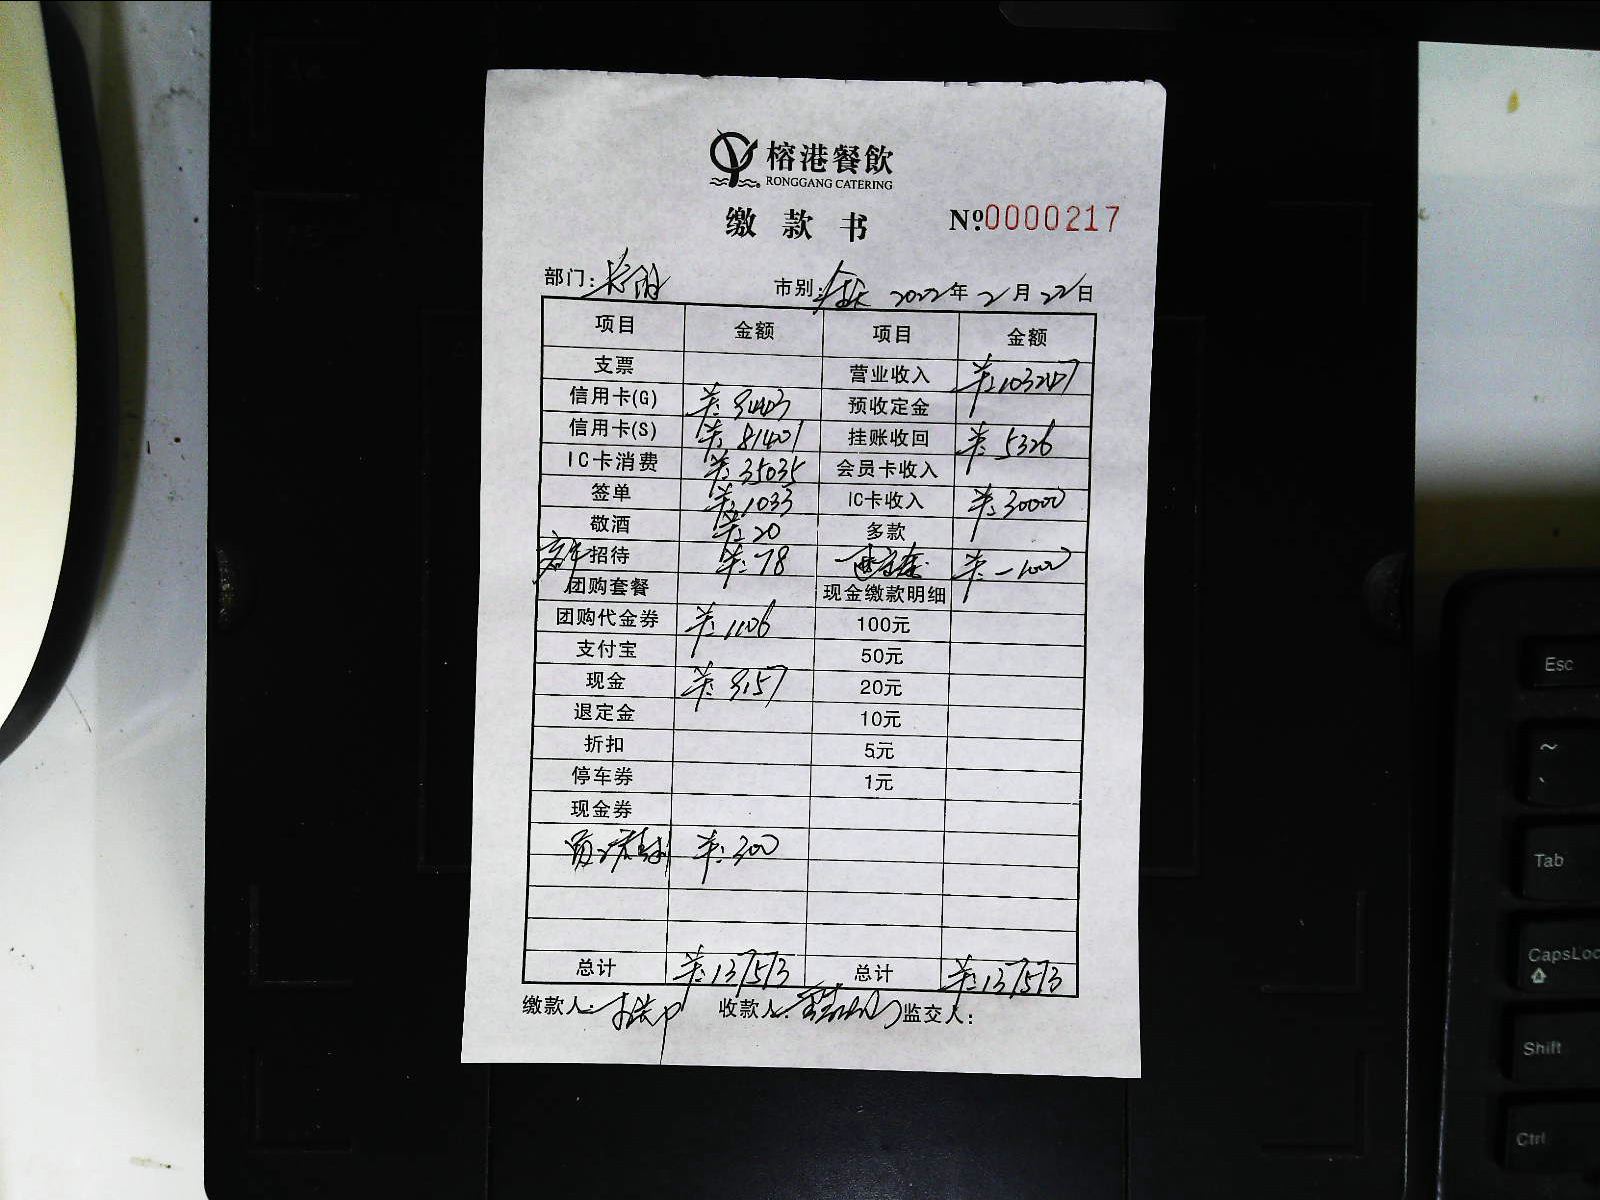 榕港餐飲
RONGGANG CATERING
缴款书 №0000217
部门: 市别: 全天 2022年2月22日
项目 金额 项目 金额
支票 营业收入 ¥:103247
信用卡(G) ¥:9443 预收定金
信用卡(S) ¥:81401 挂账收回 ¥:5326
IC卡消费 ¥:35035 会员卡收入
签单 ¥:1033 IC卡收入 ¥:30000
敬酒 ¥:20 多款
招待 ¥:78 ¥:-1000
团购套餐 现金缴款明细
团购代金券 ¥:1106 100元
支付宝 50元
现金 ¥:9157 20元
退定金 10元
折扣 5元
停车券 1元
现金券
¥:300
总计 ¥:137573 总计 ¥:137573
缴款人: 收款人: 监交人:
Esc
~
`
Tab
CapsLoc
Shift
Ctrl